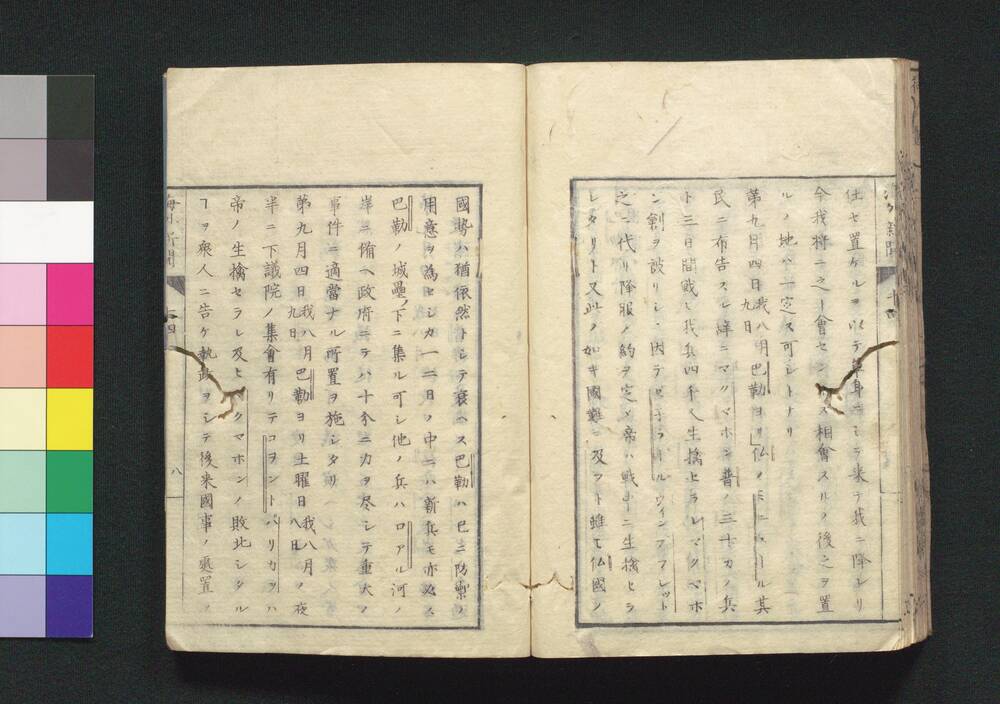 仕セ置ケルヲ以テ単身ニテミラ来テ我ニ降レリ
今我将ニ之ト會セントス相會スルノ後之ヲ置
ルノ地ハ一定ス可シトナリ
第九月四日我八月九日巴勒ヨリ仏ノ ル其
民ニ布告スレ様ニマクマホン普ノ三十万ノ兵
ト三日間戦ヒ我兵四千人生擒セラレマクマホ
ン創ヲ被リシニ因テゼネラールウィンプフレット
之ニ代リ降服ノ約ヲ定メ帝ハ戦中ニ生擒セラ
レタリト又此ノ如キ國難ニ及フト雖モ仏國ノ
國勢ハ猶依然トシテ衰ヘス巴勒ハ已ニ防禦ノ
用意ヲ為セシカ一二日ノ中ニハ新兵モ亦必ス
巴勒ノ城壘ノ下ニ集ル可シ他ノ兵ハロアル河ノ
岸ニ備ヘ政府ニテハ十分ニ力ヲ尽シテ重大ノ
事件ニ適當ナル所置ヲ施シタリ
第九月四日我八月九日巴勒ヨリ土曜日我八月八日ノ夜
半ニ下議院ノ集會有リテコヲントパリカヲハ
帝ノ生擒セラレ及ヒマクマホンノ敗北シタル
ヿヲ衆人ニ告ケ執政ヲシテ後来國事ノ處置ノ
八